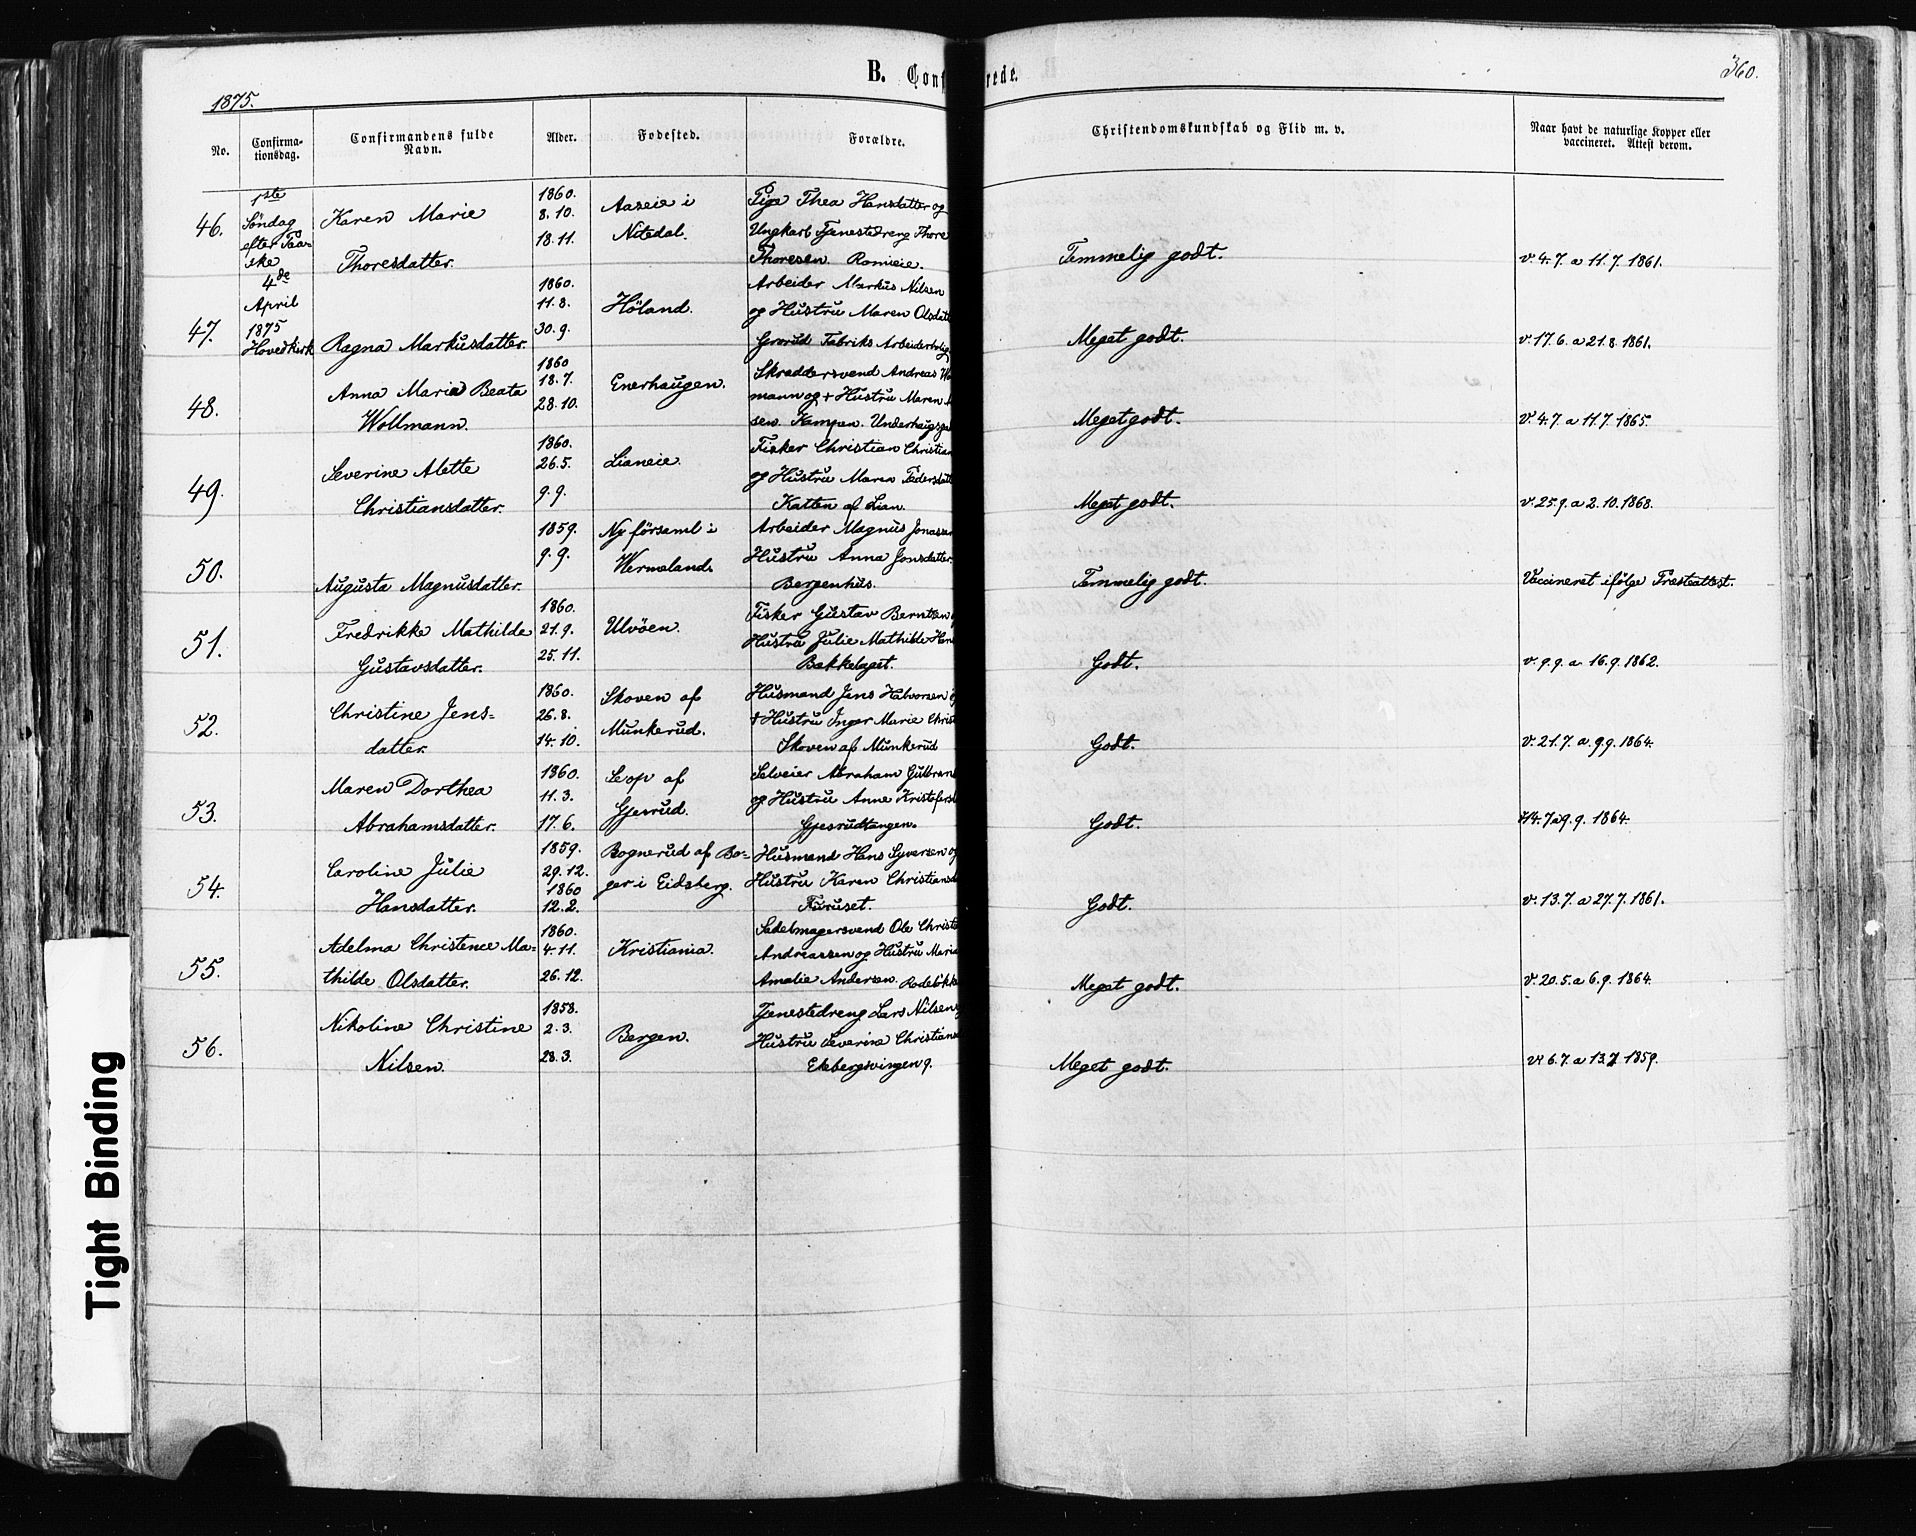 1875.
B. Conf
rede.
360.
No.
Confirma-
tionsdag.
Confirmandens fulde
Navn.
Alder.
Fødested.
Forældre.
Christendomskundskab og Flid m. v.
Naar havt de naturlige Kopper eller
vaccineret. Attest derom.
1ste
Söndag
efter Paa-
ske
4de
April
1875
Hovedkirk
46.
Karen Marie
Thoresdatter.
1860.
8. 10.
18. 11.
Aaseie i
Nitedal.
Pige Thea Hansdatter og
Ungkarl Tjenestedreng Thore
Thoresen
Temmelig godt.
v. 4. 7. a 11. 7. 1861.
47.
Ragna Markusdatter.
1860.
11. 8.
30. 9.
Höland.
Arbeider Markus Nilsen
og Hustru Maren Olsdatt
Grorud Fabriks
Meget godt.
v. 17. 6. a 21. 8. 1861.
48.
Anna Maria Beata
Wollmann.
1860
18. 7.
28. 10.
Enerhaugen.
Skræddersvend Andreas Wo
mann og + Hustru Maren
sen. Kampen.
Meget godt.
V. 4. 7. a 11. 7. 1865.
49.
Severine Alette
Christiansdatter.
1860.
26. 5.
9. 9.
Lianeie.
Fisker Christian Christian
og Hustru Maren Pedersdatt
Katten af Lian.
Meget godt.
v. 25. 9. a 2. 10. 1868.
50.
Augusta Magnusdatter.
1859.
9. 9.
Ny församl i
Wermeland.
Arbeider Magnus Jonassen
Hustru Anna Jonsdatter.
Bergenhus.
Temmelig godt.
Vaccineret ifölge Presteattest.
51.
Fredrikke Mathilde
Gustavsdatter.
1860.
21. 9.
25. 11.
Ulvöen.
Fisker Gustav Berntsen
Hustru Julie Mathilde Han
Bækkelaget.
Godt.
v. 9. 9. a 16. 9. 1862.
52.
Christine Jens-
datter.
1860.
26. 8.
14. 10.
Skoven af
Munkerud.
Husmand Jens Halvorsen og
+ Hustru Inger Marie Christ
Skoven af Munkerud
Godt.
v. 21. 7. a. 9. 9. 1864.
53.
Maren Dorthea
Abrahamsdatter.
1860.
11. 3.
17. 6.
Seop af
Gjesrud.
Selveier Abraham Gulbran
og Hustru Anne Kristofers
Gjesrudtangen.
Godt.
v. 14. 7. a 9. 9. 1864.
54.
Caroline Julie
Hansdatter.
1859.
29. 12.
1860
12. 2.
Bognerud af Bo-
ger i Eidsberg.
Husmand Hans Syversen og
Hustru Karen Christiansd
Furuset.
Godt.
v. 13. 7. a 27. 7. 1861.
55.
Adelma Christence Ma-
thilde Olsdatter.
1860.
4. 11.
26. 12.
Kristiania.
Sadelmagersvend Ole Christ
Andreassen og Hustru Maria
Amalie Andersen. Rodelökke
Meget godt.
v. 20. 5. a 6. 9. 1864.
56.
Nikoline Christine
Nilsen.
1858.
2. 3.
28. 3.
Bergen.
Tjenestedreng Lars Nilsen
Hustru Severine Christians
Ekebergsvingen 9.
Meget godt.
v. 6. 7. a 13. 7. 1859.
Tight Binding